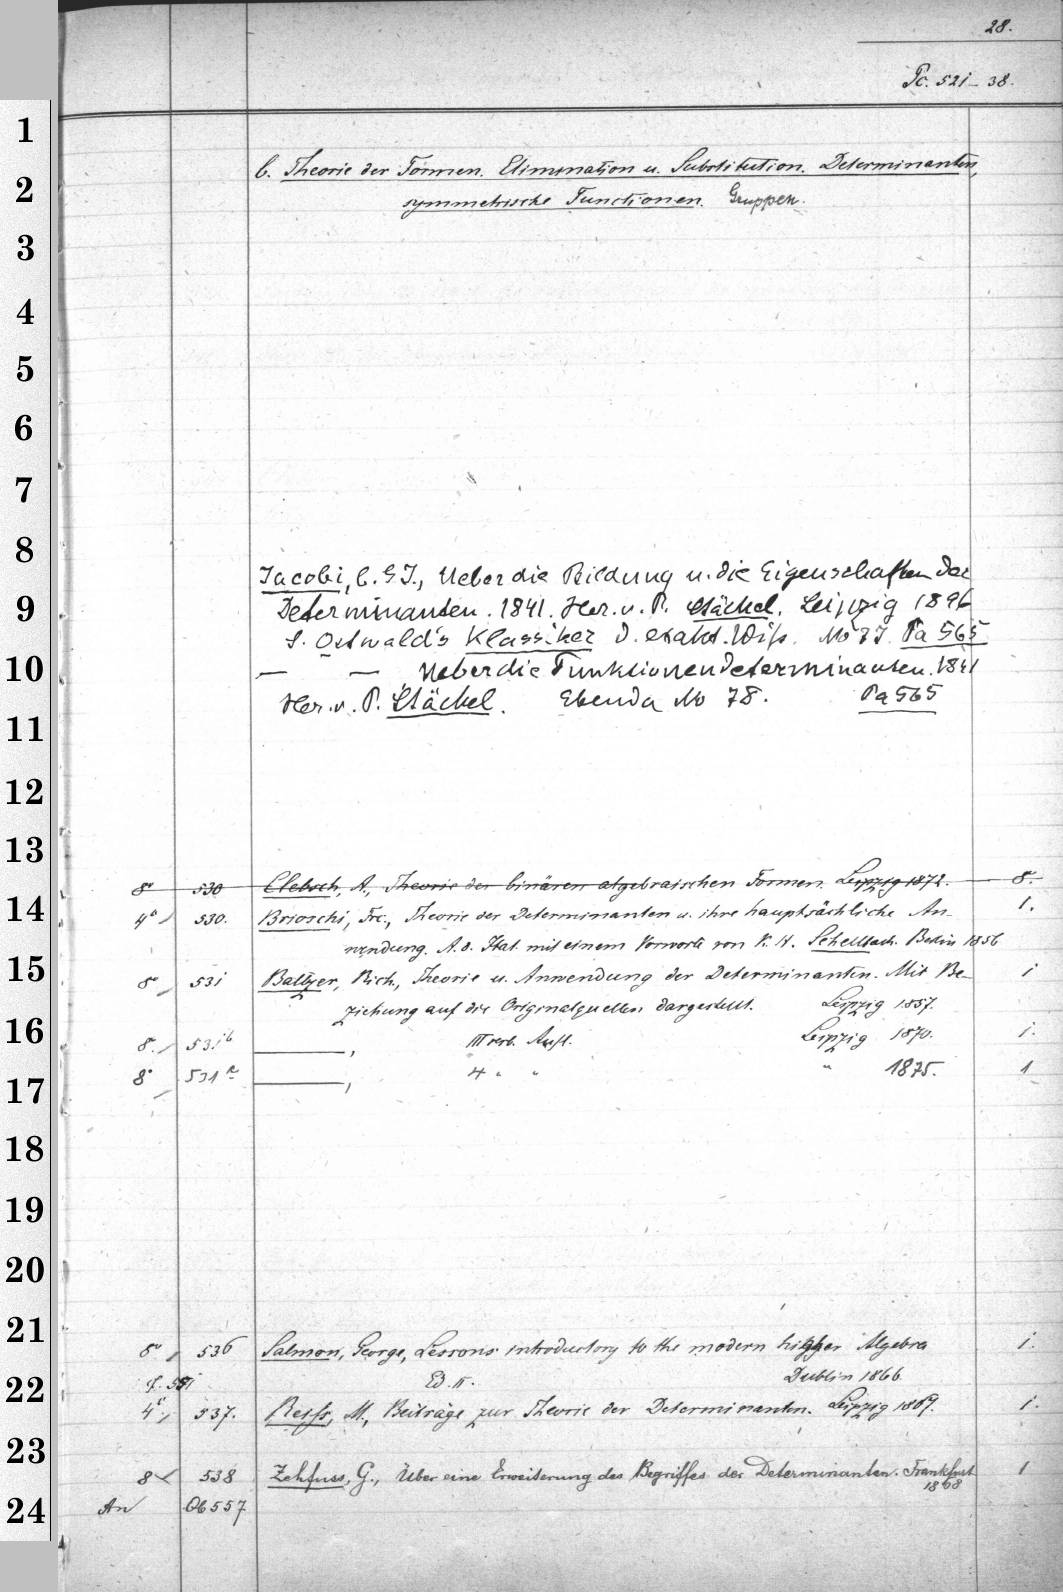 28.
Pc. 521-38.
b. Theorie der Formen. Elimination u. Substitution. Determinanten,
symmetrische Functionen. Gruppen.
Jacobi, C. G. J., Ueber die Bildung u. die Eigenschaften der
Determinanten. 1841. Her. v. P. Stäckel. Leipzig 1896
S. Ostwald's Klassiker d. exakt. Wiss. No 77. Pa 565
— — Ueber die Funktionendeterminanten. 1841
Her. v. P. Stäckel. Ebenda No 78. Pa 565
8° 530 Clebsch, A., Theorie der binären algebraischen Formen. Leipzig 1872. 8.
4° 530. Brioschi, Frc., Theorie der Determinanten u. ihre hauptsächliche An-
wendung. A. d. Ital. mit einem Vorworte von K. H. Schellbach. Berlin 1856 1.
8° 531 Baltzer, Rich., Theorie u. Anwendung der Determinanten. Mit Be- 1
ziehung auf die Originalquellen dargestellt. Leipzig 1857.
8. 531b ——, III verb. Aufl. Leipzig 1870. 1.
8° 531 ——, 4 " " " 1875. 1
8° 536 Salmon, George, Lessons introductory to the modern higher Algebra 1.
Ed. II. Dublin 1866
4° 537. Reiss, M., Beiträge zur Theorie der Determinanten. Leipzig 1867. 1.
8 538 Zehfuss, G., Über eine Erweiterung des Begriffes der Determinanten. Frankfurt 1
1868
An Ob 557